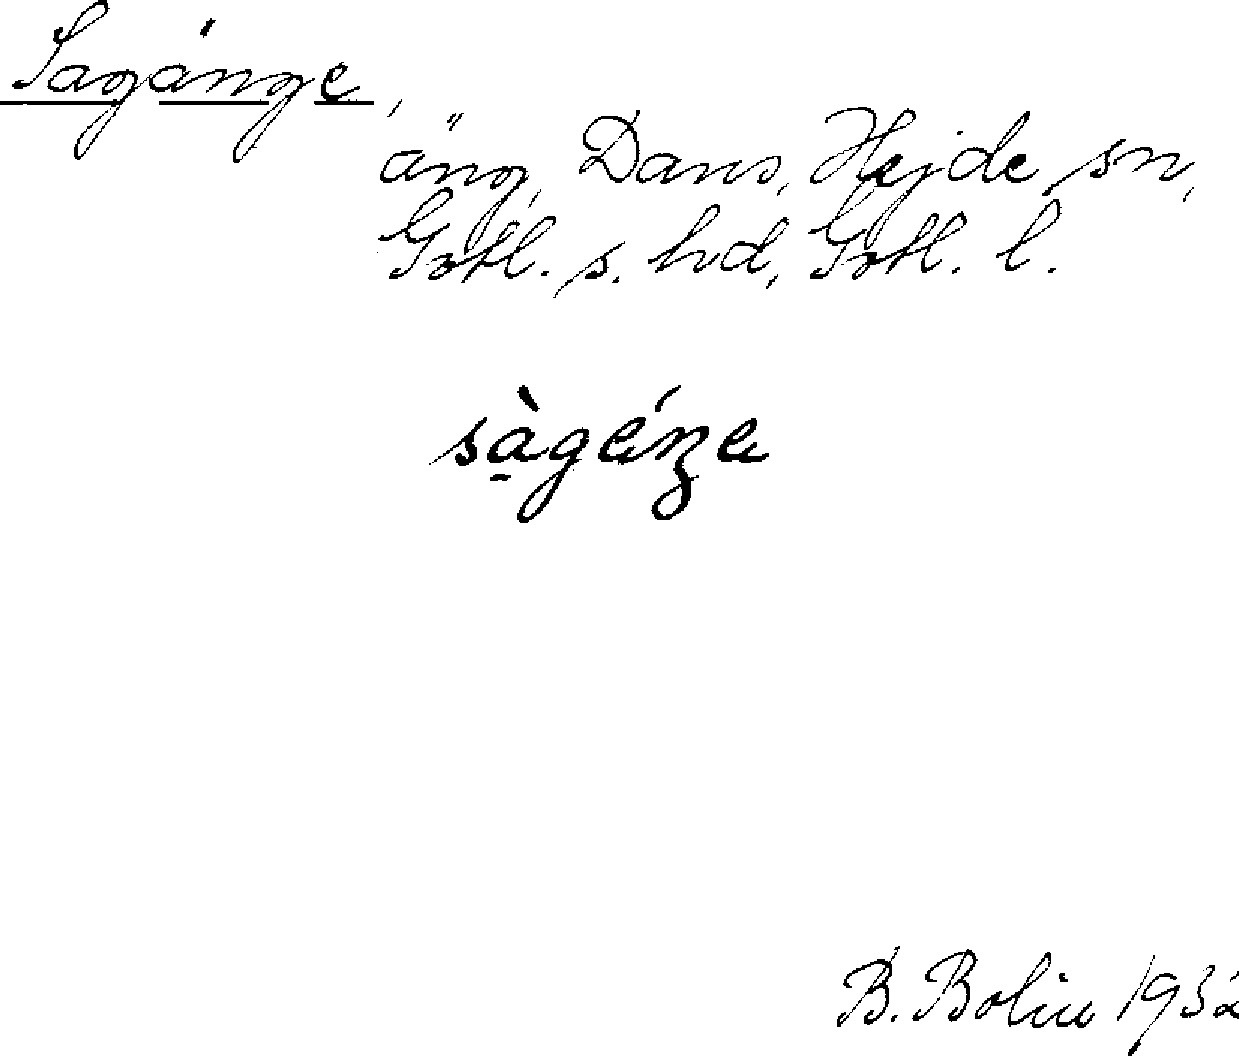 Sagänge,
äng, Dans, Hejde sn,
Gotl. s. hd, Gotl. l.
sàgéŋe
B. Bolin 1932